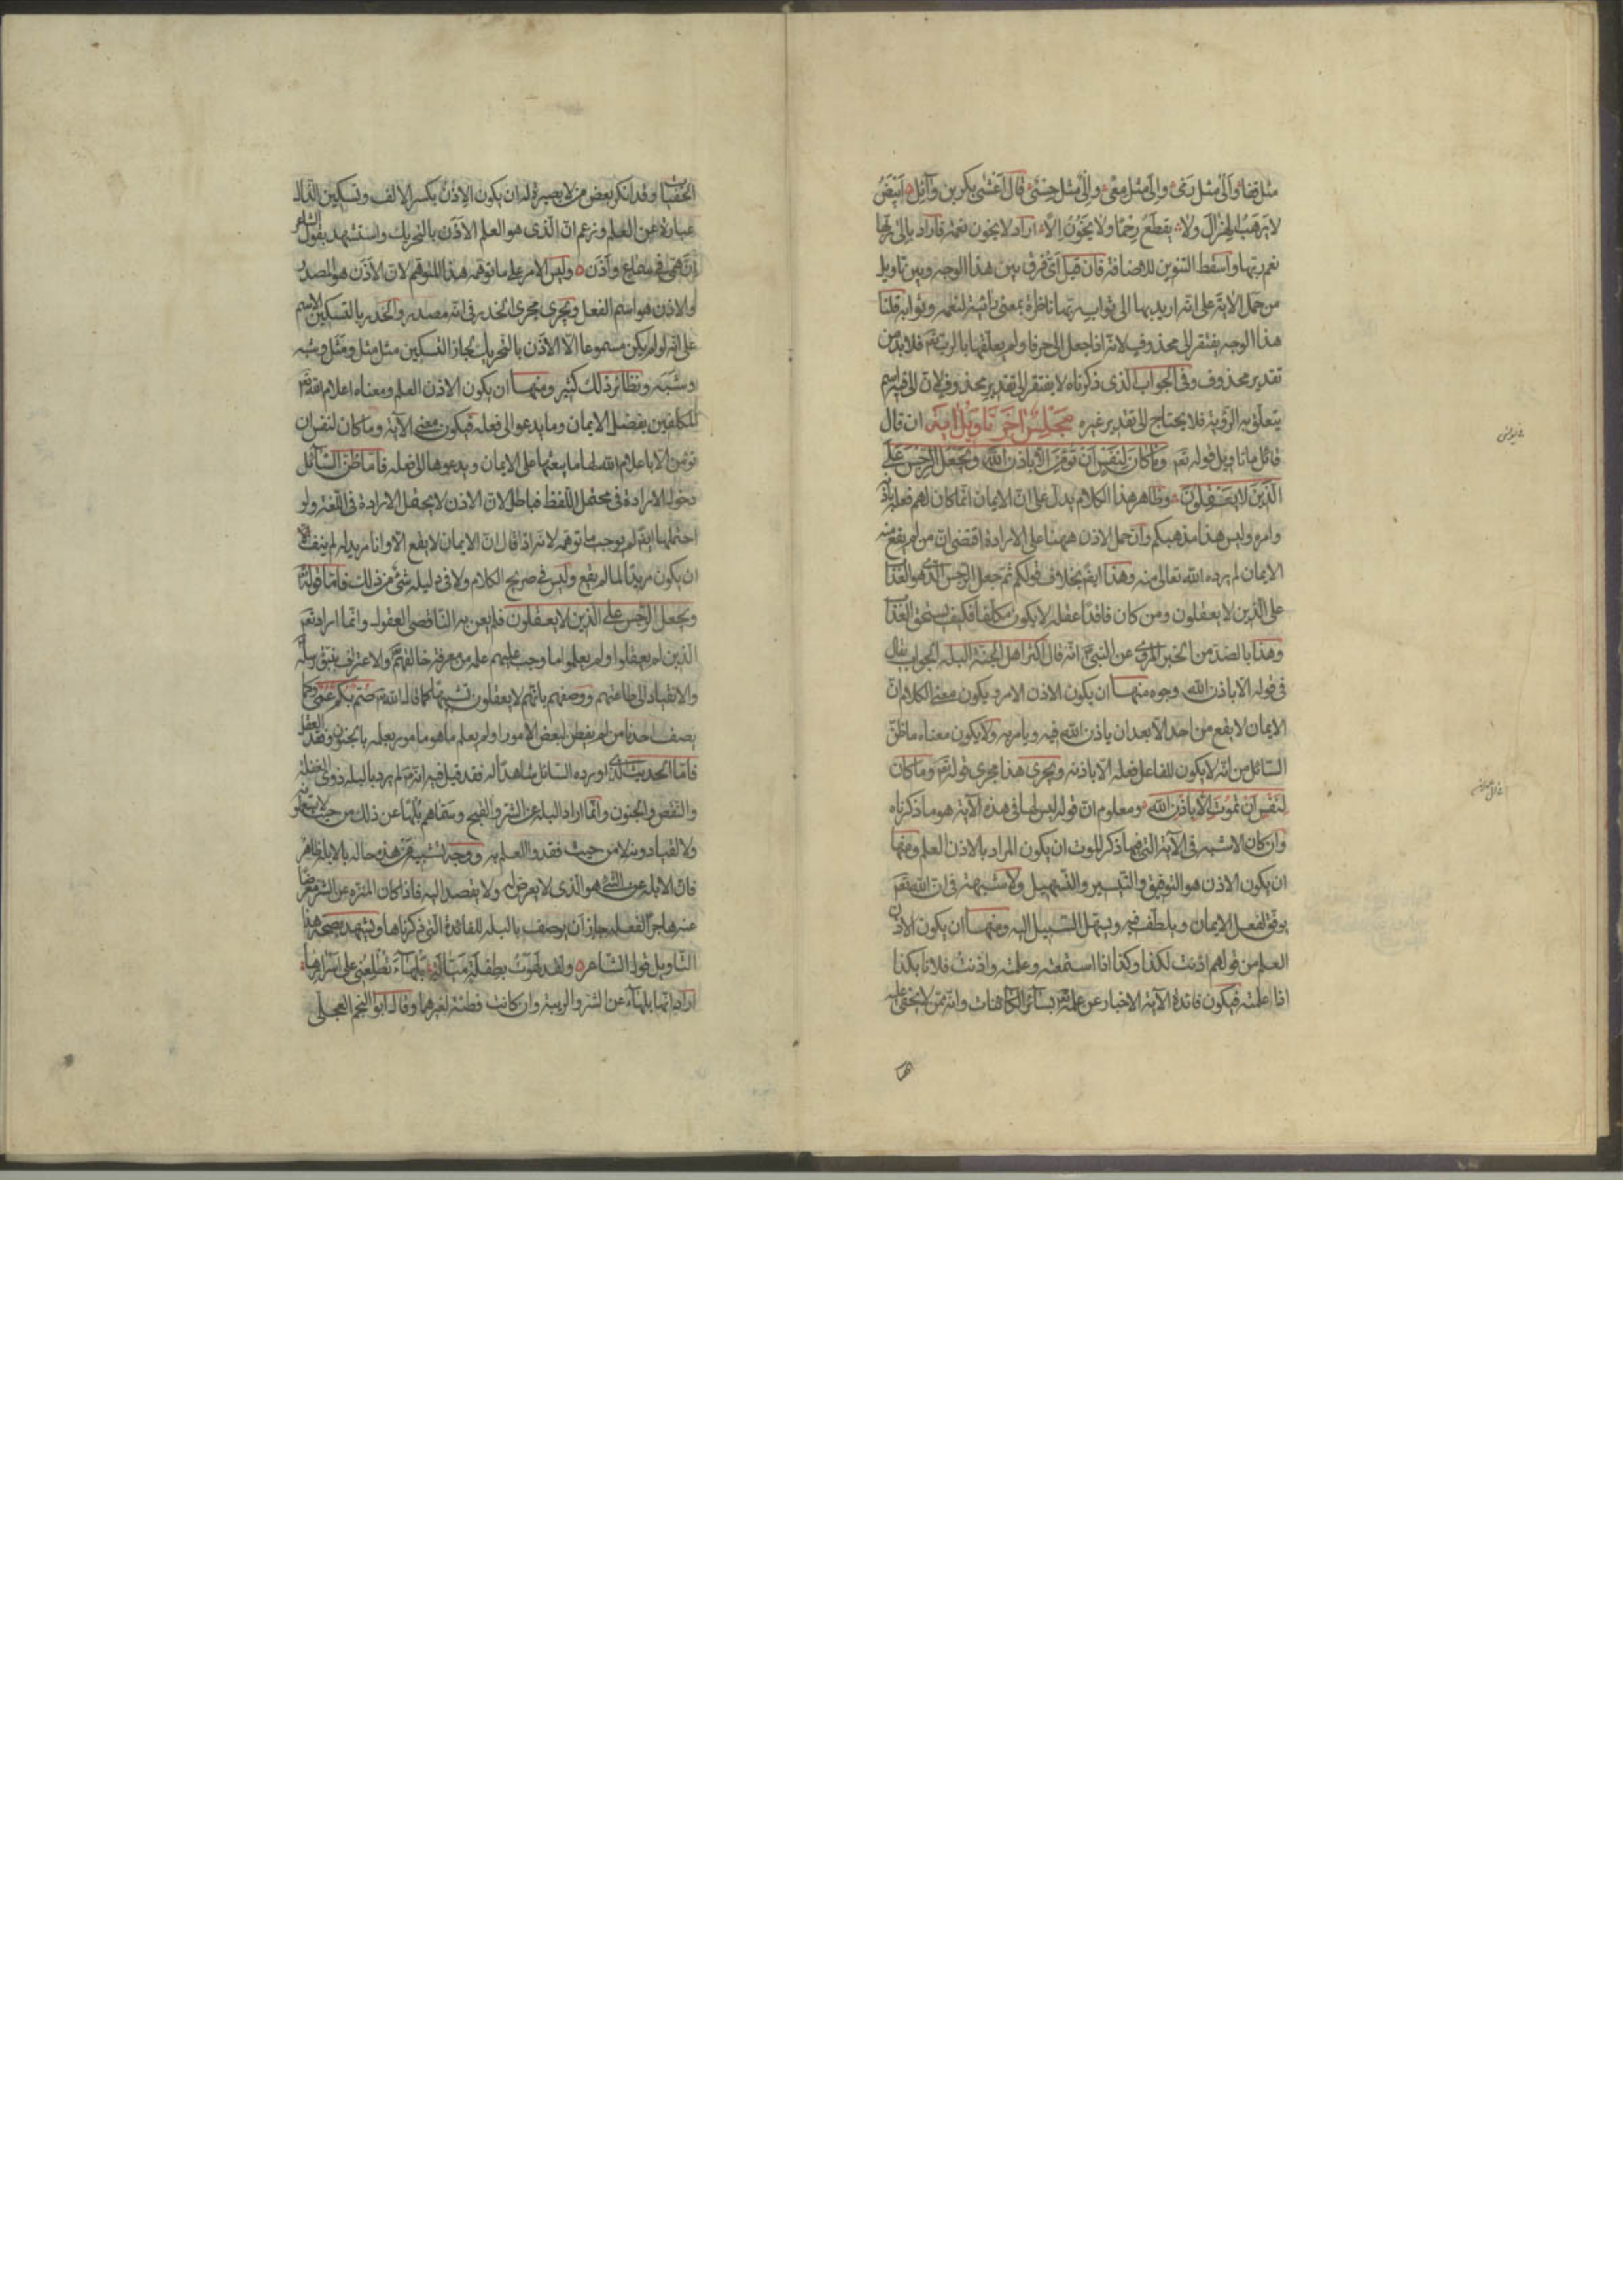 مثل قفا وألى مثل رمى وإلى مثل معى وإلي مثل حسي قال اعشى بكر بن وائل ابيض
لا يرهب الهزال ولا يقطع رحما ولا يخون إلا اراد لا يخون نعمة فاراد بإلى ربها
نعم ربها واسقط التنوين للاضافة فان قيل اى فرق بين هذا الوجه وبين تاويل
من حمل الآية على انه اريد بها الى ثواب ربها ناظرة بمعنى رائية لنعمه وثوابه قلنا
هذا الوجه يفتقر الى محذوف لانه اذا جعل الى حرفا ولم يعلقها بالرب تعم فلا بد من
تقدير محذوف وفى الجواب الذى ذكرناه لا يفتقر الى تقدير محذوف لان الى فيه اسم
يتعلق به الرؤية فلا يحتاج الى تقدير غيره مجلس آخر تاويل آية ان قال
قائل ما تاويل قوله تعم وما كان لنفس ان تؤمن الا باذن الله ويجعل الرجس على
الذين لا يعقلون وظاهر هذا الكلام يدل على ان الايمان انما كان لهم فعله باذنه
وامره وليس هذا مذهبكم وان حمل الاذن ههنا على الارادة اقتضى ان من لم يقع منه
الايمان لم يرده الله تعالى منه وهذا ايضم بخلاف قولكم ثم جعل الرجس الذى هو العذاب
على الذين لا يعقلون ومن كان فاقدا عقله لا يكون مكلفا فكيف يستحق العذاب
وهذا بالضد من الخبر المروى عن النبي انه قال اكثر اهل الجنة البله الجواب يقال
فى قوله الا باذن الله وجوه منها ان يكون الاذن الامر ويكون معنى الكلام ان
الايمان لا يقع من احد الا بعد ان ياذن الله فيه ويامر به ولا يكون معناه ما ظن
السائل من انه لا يكون للفاعل فعله الا باذنه ويجرى هذا مجرى قوله تعم وما كان
لنفس ان تموت الا باذن الله ومعلوم ان قوله ليس لها فى هذه الآية هو ما ذكرناه
وان كان الاشبه فى الآية التى فيها ذكر الموت ان يكون المراد بالاذن العلم ومنها
ان يكون الاذن هو التوفيق والتيسير والتسهيل ولا شبهة فى ان الله تعم
يوفق لفعل الايمان ويلطف فيه ويسهل السبيل اليه ومنها ان يكون الاذن
العلم من قولهم اذنت لكذا وكذا اذا استمعته وعلمته واذنت فلانا بكذا
اذا علمته فيكون فائدة الآية الاخبار عن علمه تعم بسائر الكائنات وانه ممن لا يخفى عليه
الخفيات وقد انكر بعض من لا بصيرة له ان يكون الاذن بكسر الالف وتسكين الذال
عبارة عن العلم وزعم ان الذى هو العلم الاذن بالتحريك واستشهد بقول الشاعر
ان همى فى سماع واذن وليس الامر على ما توهمه هذا المتوهم لان الاذن هو المصدر
والاذن هو اسم الفعل ويجرى مجرى الحذر فى انه مصدر والحذر بالتسكين الاسم
على انه لو لم يكن مسموعا الا الاذن بالتحريك لجاز التسكين مثل مثل ومثل وشبه
وشبه ونظائر ذلك كثير ومنها ان يكون الاذن العلم ومعناه اعلام الله تعم
المكلفين بفضل الايمان وما يدعو الى فعله فيكون معنى الآية وما كان لنفس ان
تؤمن الا باعلام الله لها ما يبعثها على الايمان ويدعوها الى فعله فاما ظن السائل
دخول الارادة فى محتمل اللفظ فباطل لان الاذن لا يحتمل الارادة فى اللغة ولو
احتملها ايضم لم يوجب ما توهمه لانه اذا قال ان الايمان لا يقع الا وانا مريد له لم ينف
ان يكون مريدا لما لم يقع وليس فى صريح الكلام ولا فى دليله شئ من ذلك فاما قوله تعم
ويجعل الرجس على الذين لا يعقلون فلم يعن به الناقصى العقول وانما اراد تعم
الذين لم يعقلوا ولم يعلموا ما وجب عليهم علمه من معرفة خالقهم والاعتراف بنبوة رسله
والانقياد الى طاعتهم ووصفهم بانهم لا يعقلون تشبيها كما قال الله تعم صم بكم عمى وكما
يصف احدنا من لم يفطن لبعض الامور او لم يعلم ما هو مامور بعلمه بالجنون وفقد العقل
فاما الحديث الذى اورده السائل شاهدا له فقد قيل فيه انه لم يرد بالبله ذوى الغفلة
والنقص والجنون وانما اراد البله عن الشر والقبيح وسماهم بلها عن ذلك من حيث لا يستعملونه
ولا يعتادونه لا من حيث فقدوا العلم به ووجه تشبيه من هذه حاله بالابله ظاهر
فان الابله عن الشئ هو الذى لا يعرض له ولا يقصد اليه فاذا كان المتنزه عن الشر معرضا
عنه هاجرا لفعله جاز ان يوصف بالبله للفائدة التى ذكرناها ويشهد بصحة هذا
التاويل قول الشاعر ولقد لهوت بطفلة ميالة بلهاء تطلعنى على اسرارها
اراد انها بلهاء عن الشر والريبة وان كانت فطنة لغيرهما وقال ابو النجم العجلى